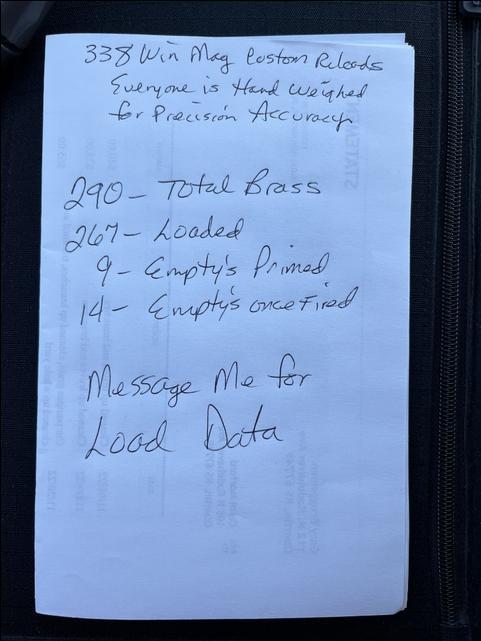 338 Win Mag Custom Reloads
Everyone is Hand Weighed
for Precision Accuracy
290 - Total Brass
267 - Loaded
9 - Empty's Primed
14 - Empty's once Fired
Message Me for
Load Data
STATEMENT